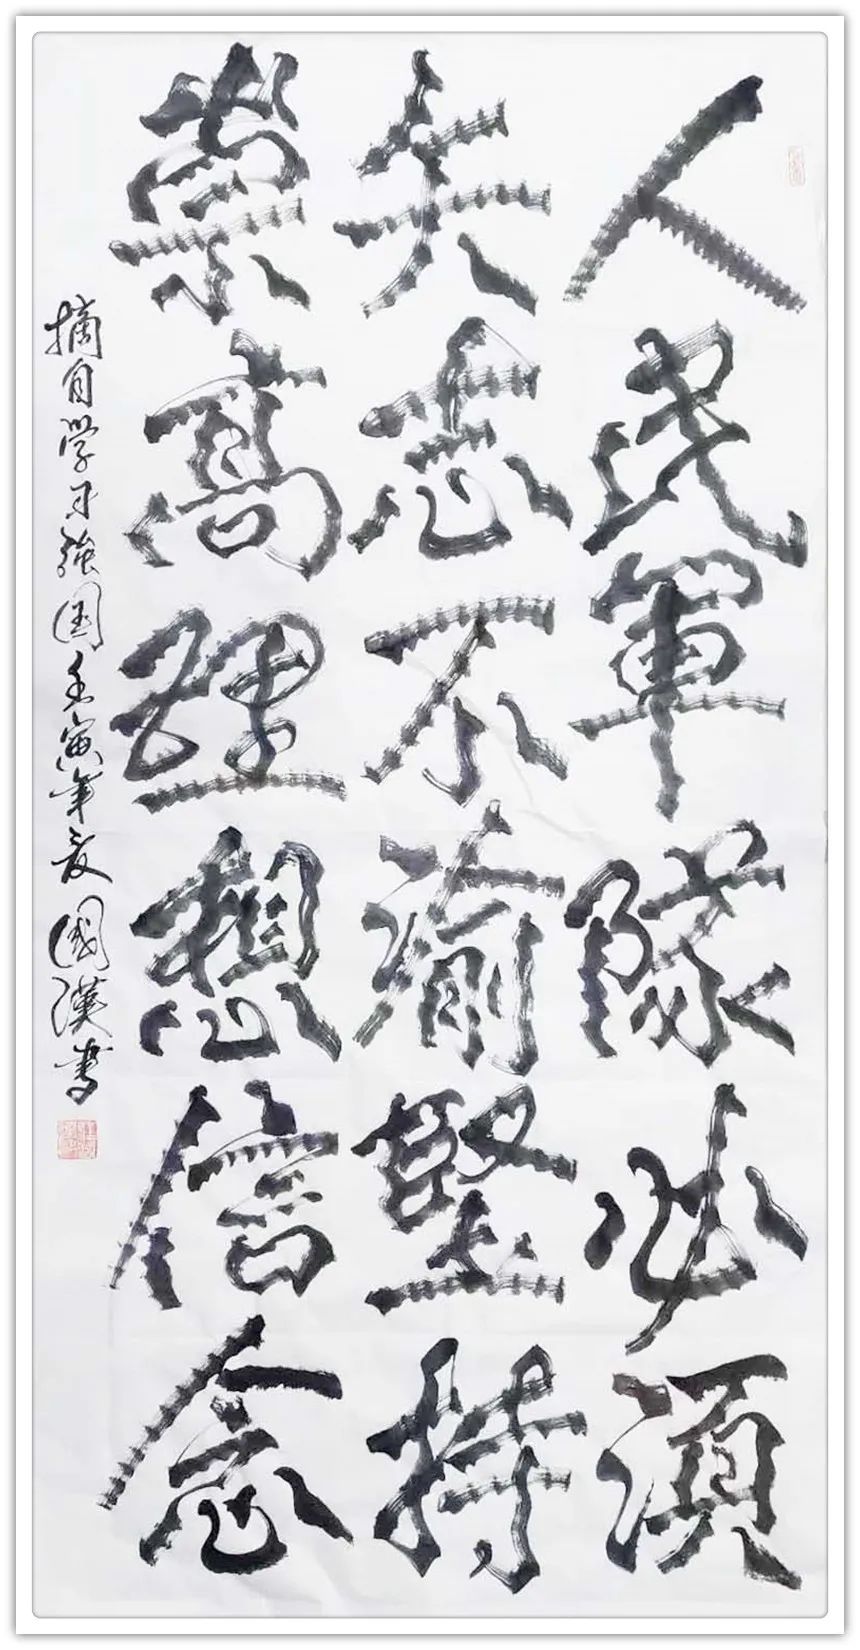 人民軍隊必須
矢志不渝堅持
崇高理想信念
摘自学习強国壬寅年夏國漢書